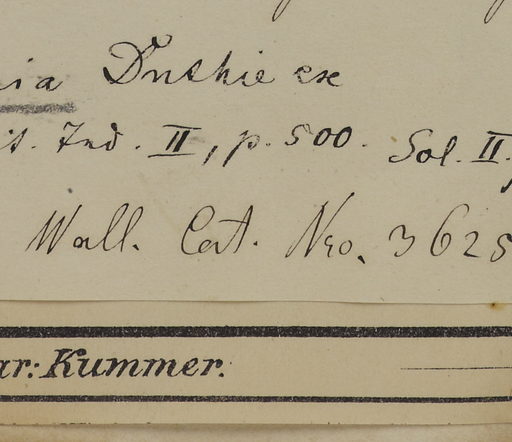 ia Duthie ex
it. Ind. II, p. 500. Sol. II.
Wall. Cat. Nro. 3625
ar: Kummer.